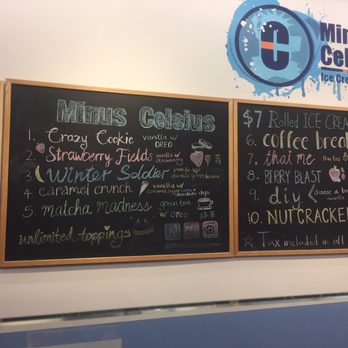 Minus Celsius
1. Crazy Cookie vanilla w/ OREO
2. Strawberry Fields vanilla w/ strawberry
3. Winter Soldier vanilla w/
4. caramel crunch vanilla w/
5. matcha madness green tea w/ oreo
unlimited toppings
Min
Cel
Ice Cre
$7 Rolled ICE CREA
6. coffee brea
7. thai me
8. BERRY BLAST
9. diy choose a
10. NUTCRACKER
Tax included in all